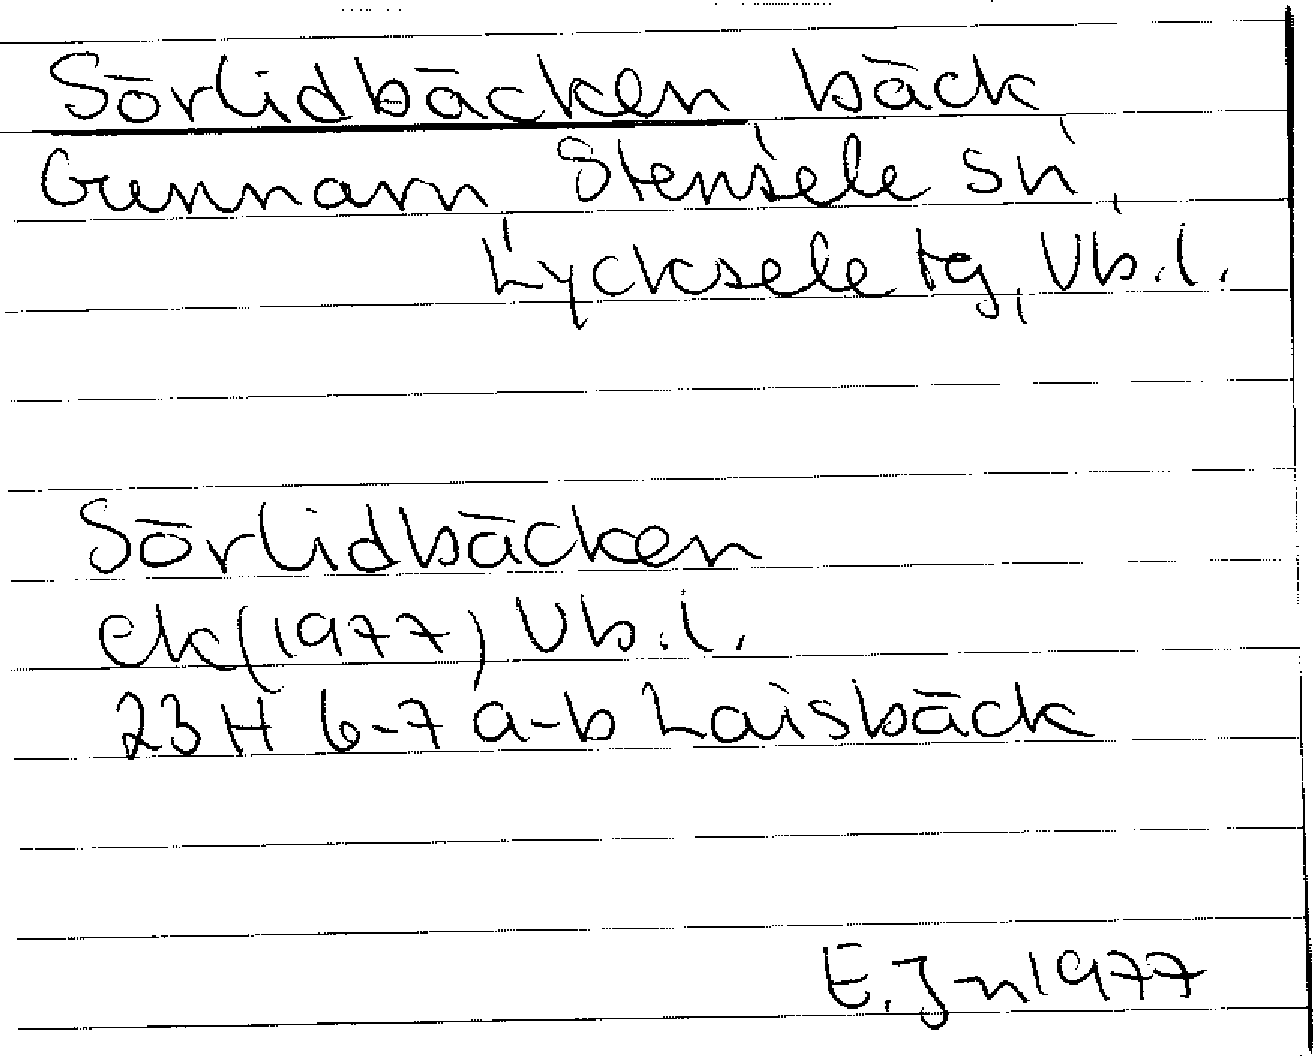 Sörlidbäcken bäck
Gunnarn Stensele sn,
Lycksele tg, Vb.l.
Sörlidbäcken
ek (1977) Vb.l.
23H 6-7 a-b Laisbäck
E. J-n 1977